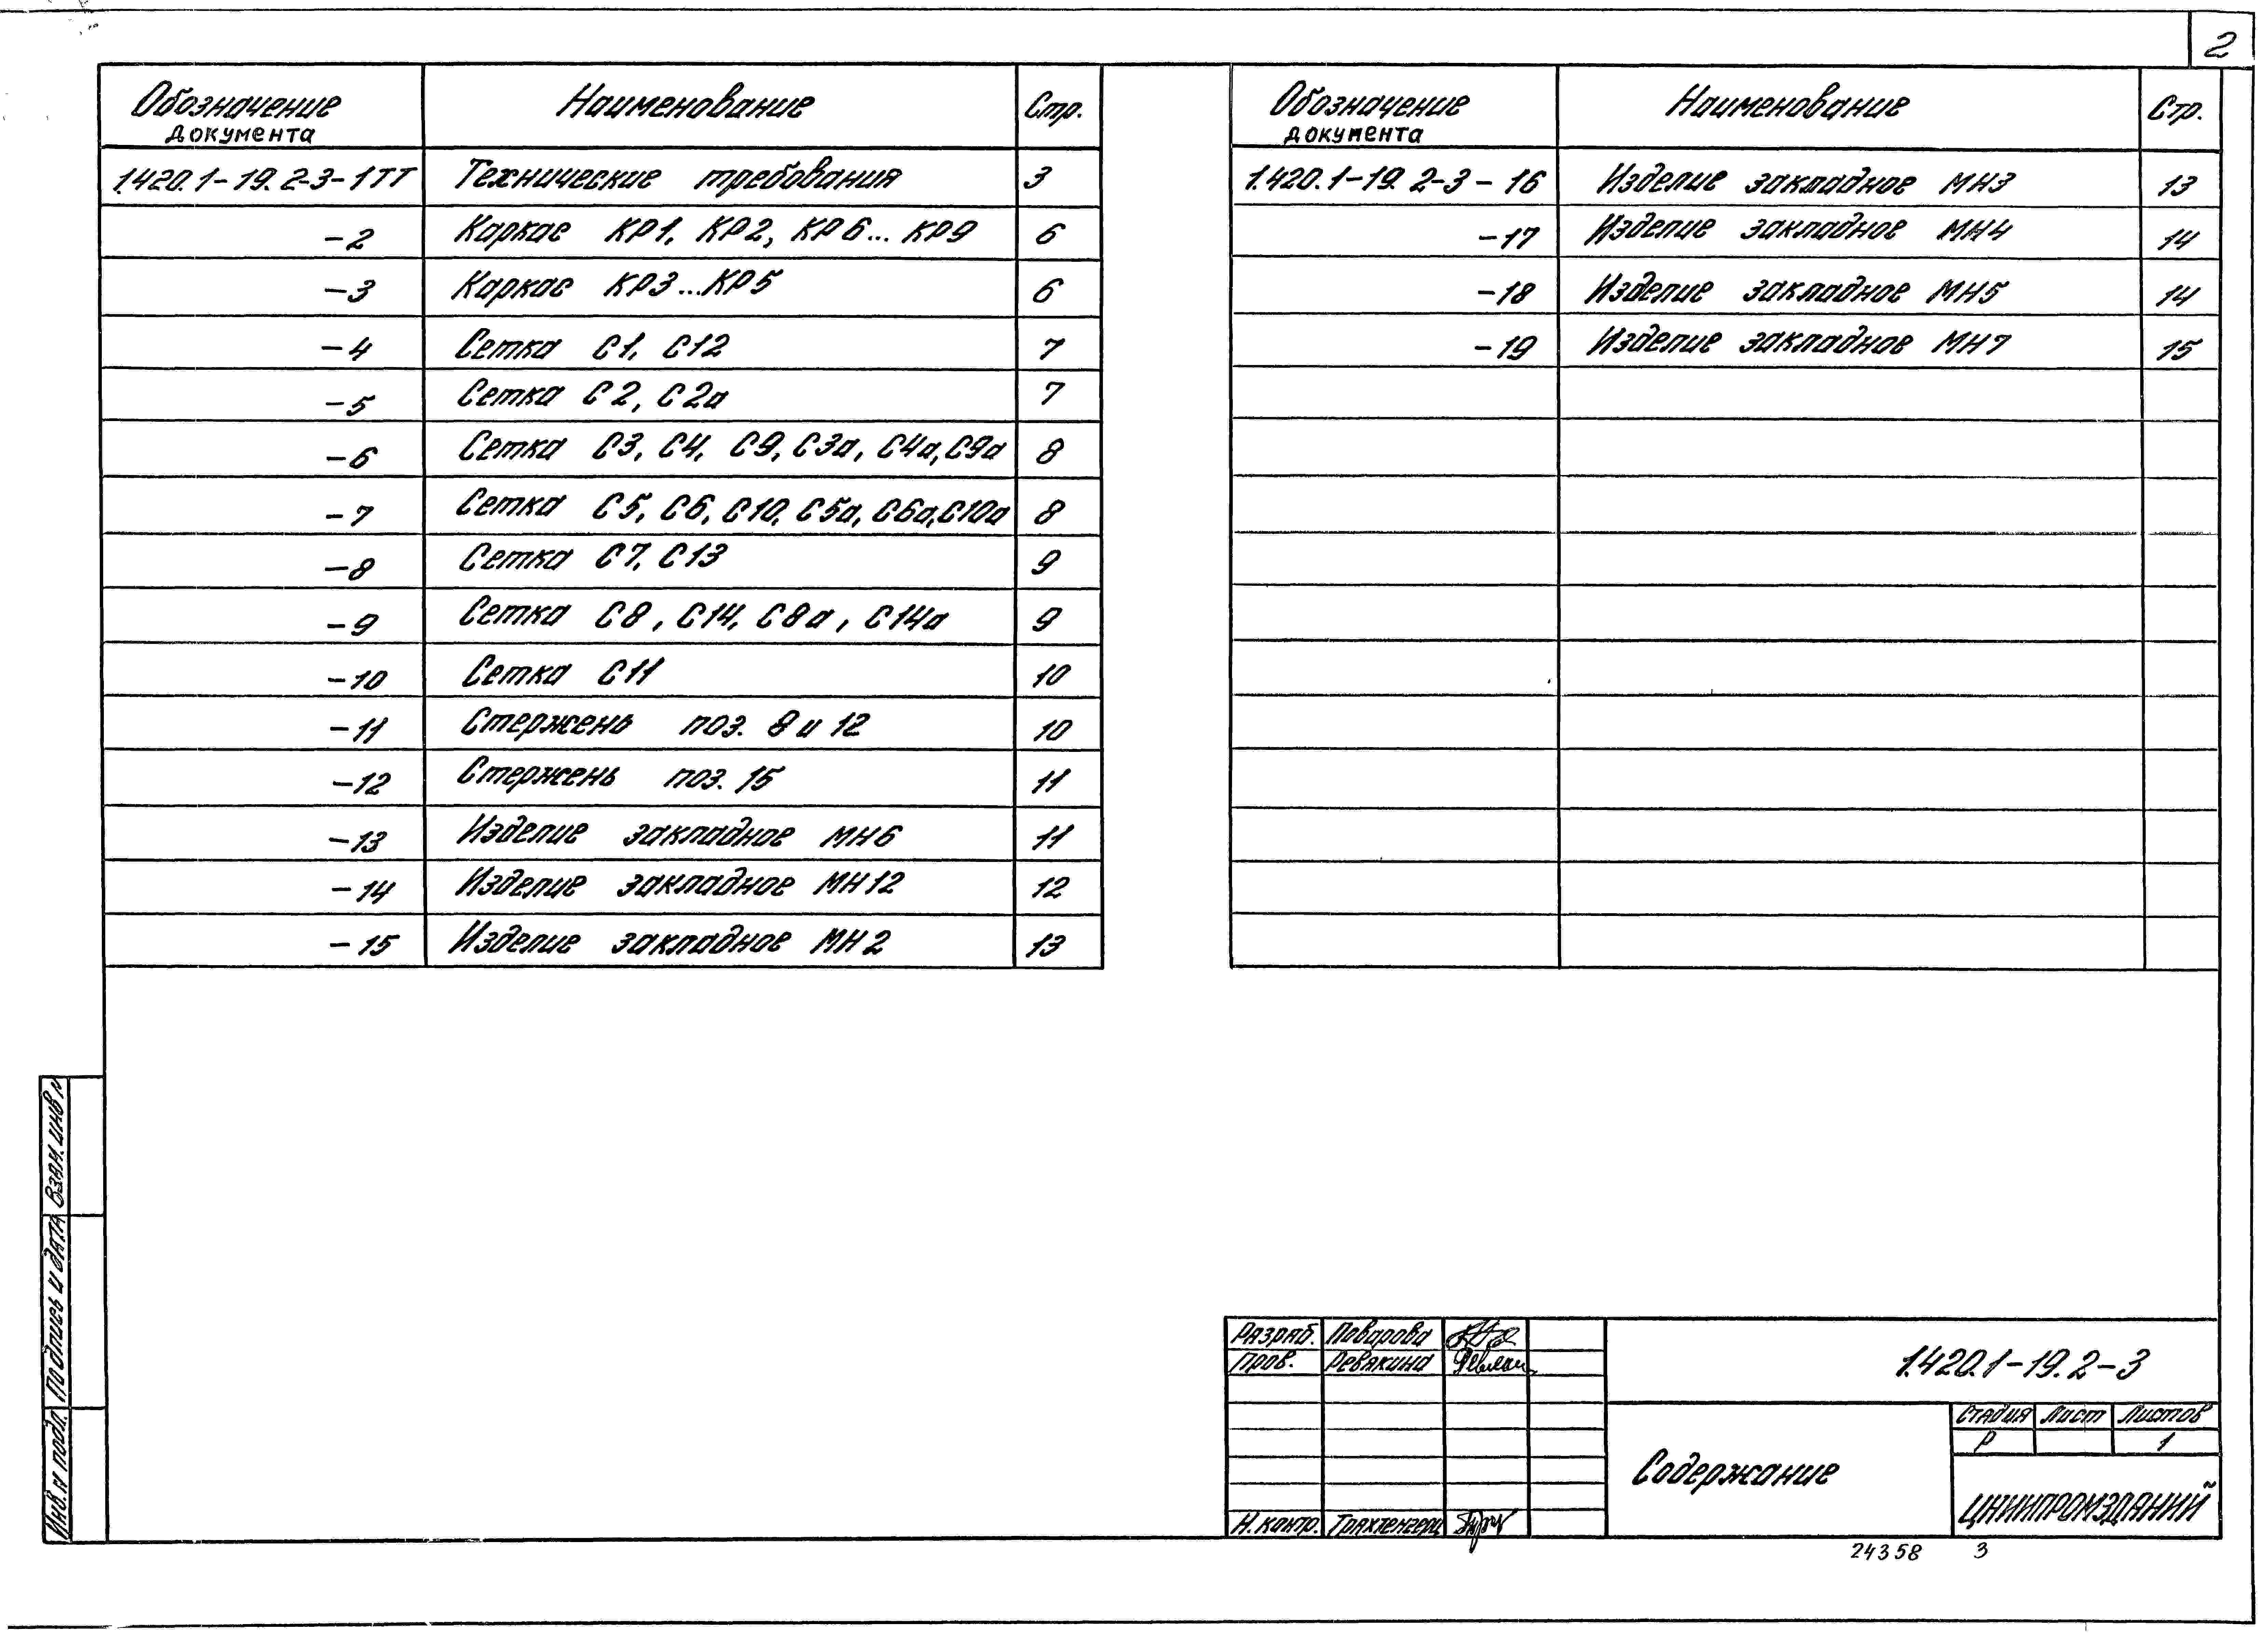 2
Обозначение документа Наименование Стр.
1.420.1-19.2-3-1ТТ Технические требования 3
-2 Каркас КР1, КР2, КР6...КР9 6
-3 Каркас КР3...КР5 6
-4 Сетка С1, С12 7
-5 Сетка С2, С2а 7
-6 Сетка С3, С4, С9, С3а, С4а, С9а 8
-7 Сетка С5, С6, С10, С5а, С6а, С10а 8
-8 Сетка С7, С13 9
-9 Сетка С8, С14, С8а, С14а 9
-10 Сетка С11 10
-11 Стержень поз. 8 и 12 10
-12 Стержень поз. 15 11
-13 Изделие закладное МН6 11
-14 Изделие закладное МН12 12
-15 Изделие закладное МН2 13
Обозначение документа Наименование Стр.
1.420.1-19.2-3-16 Изделие закладное МН3 13
-17 Изделие закладное МН4 14
-18 Изделие закладное МН5 14
-19 Изделие закладное МН7 15
Взам. инв N
Подпись и дата
Инв. N подл.
Разраб. Поварова
Пров. Ревякина
Н. контр. Трахтенгерц
1.420.1-19.2-3
Содержание
Стадия Лист Листов
Р 1
ЦНИИПРОМЗДАНИЙ
24358 3